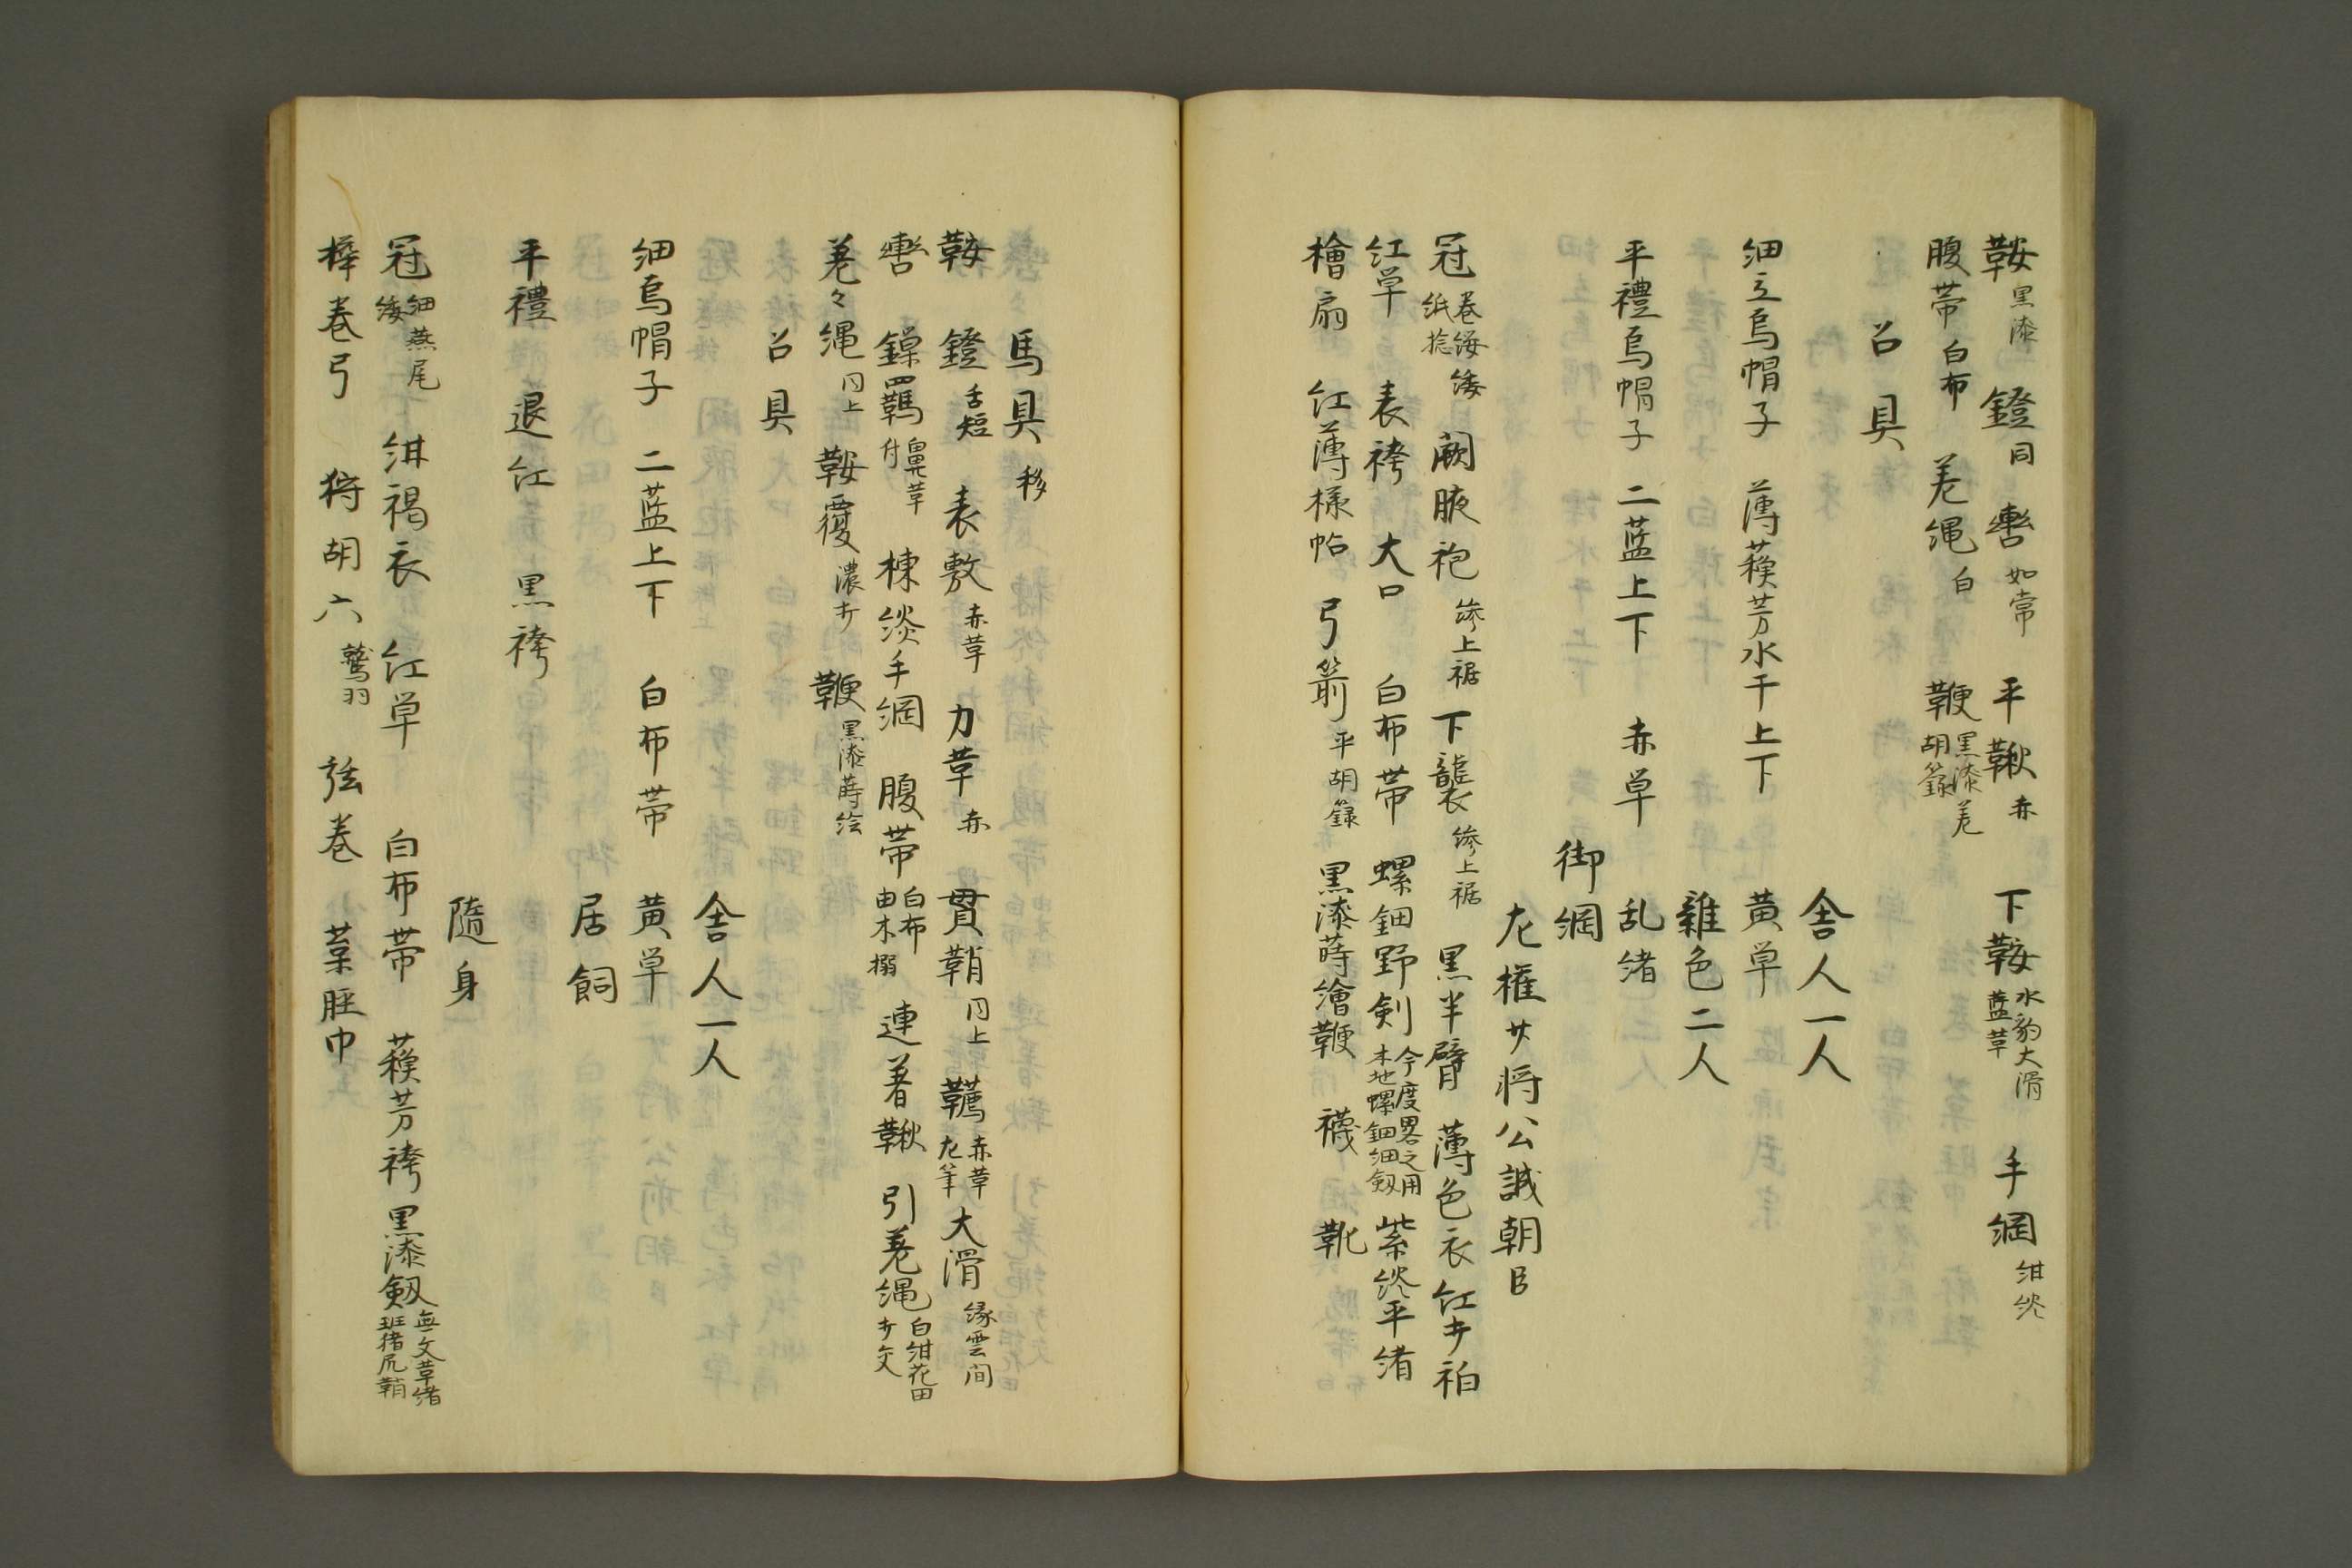 鞍黒漆 鐙同 轡如常 平鞦赤 下鞍水豹大滑藍革 手綱紺総
腹帯白布 差縄白 鞭黒漆差胡籙
召具
舎人一人
細立烏帽子 薄蘓芳水干上下 黄単
雑色二人
平禮烏帽子 二藍上下 赤単 乱緒
御綱
左権少将公誠朝臣
冠巻纓緌紙捻 闕腋袍縿上裾 下襲縿上裾 黒半臂 薄色衣 紅打衵
紅単 表袴 大口 白布帯 螺鈿野剣今度畧之用木地螺鈿細釼 紫緂平緒
檜扇 紅薄様帖 弓箭平胡籙 黒漆蒔繪鞭 襪 靴
馬具移
鞍 鐙舌短 表敷赤革 力革赤 貫鞘同上 韉赤革 大滑縁雲間
轡 鏁羈付鼻革 棟緂手綱 腹帯白布由木搦 連着鞦 引差縄白紺花田打交
差々縄同上 鞍覆濃打 鞭黒漆蒔絵
召具
舎人一人
細烏帽子 二藍上下 白布帯 黄単
居飼
平禮 退紅 黒袴
隨身
冠細燕尾緌 紺褐衣 紅単 白布帯 蘓芳袴 黒漆釼無文革緒斑猪尻鞘
樺巻弓 狩胡六鷲羽 弦巻 葉脛巾